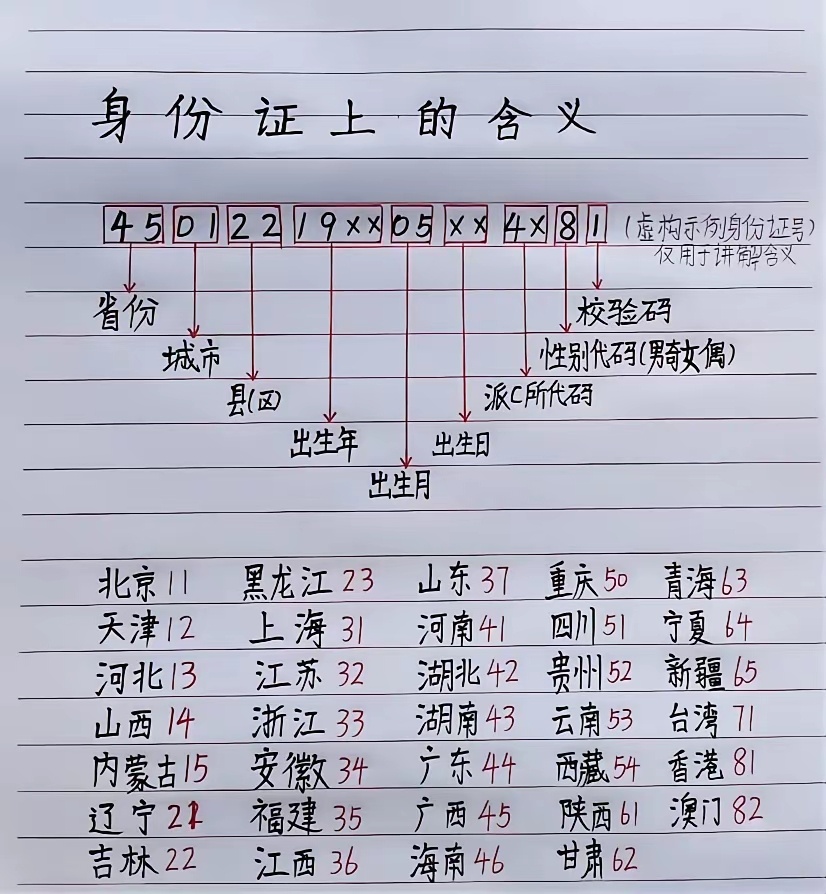 身份证上的含义
45 01 22 19xx 05 xx 4x 8 1 (虚构示例身份证号)
仅用于讲解含义
省份
校验码
城市
性别代码(男奇女偶)
县(区)
派C所代码
出生年
出生日
出生月
北京11 黑龙江23 山东37 重庆50 青海63
天津12 上海31 河南41 四川51 宁夏64
河北13 江苏32 湖北42 贵州52 新疆65
山西14 浙江33 湖南43 云南53 台湾71
内蒙古15 安徽34 广东44 西藏54 香港81
辽宁21 福建35 广西45 陕西61 澳门82
吉林22 江西36 海南46 甘肃62